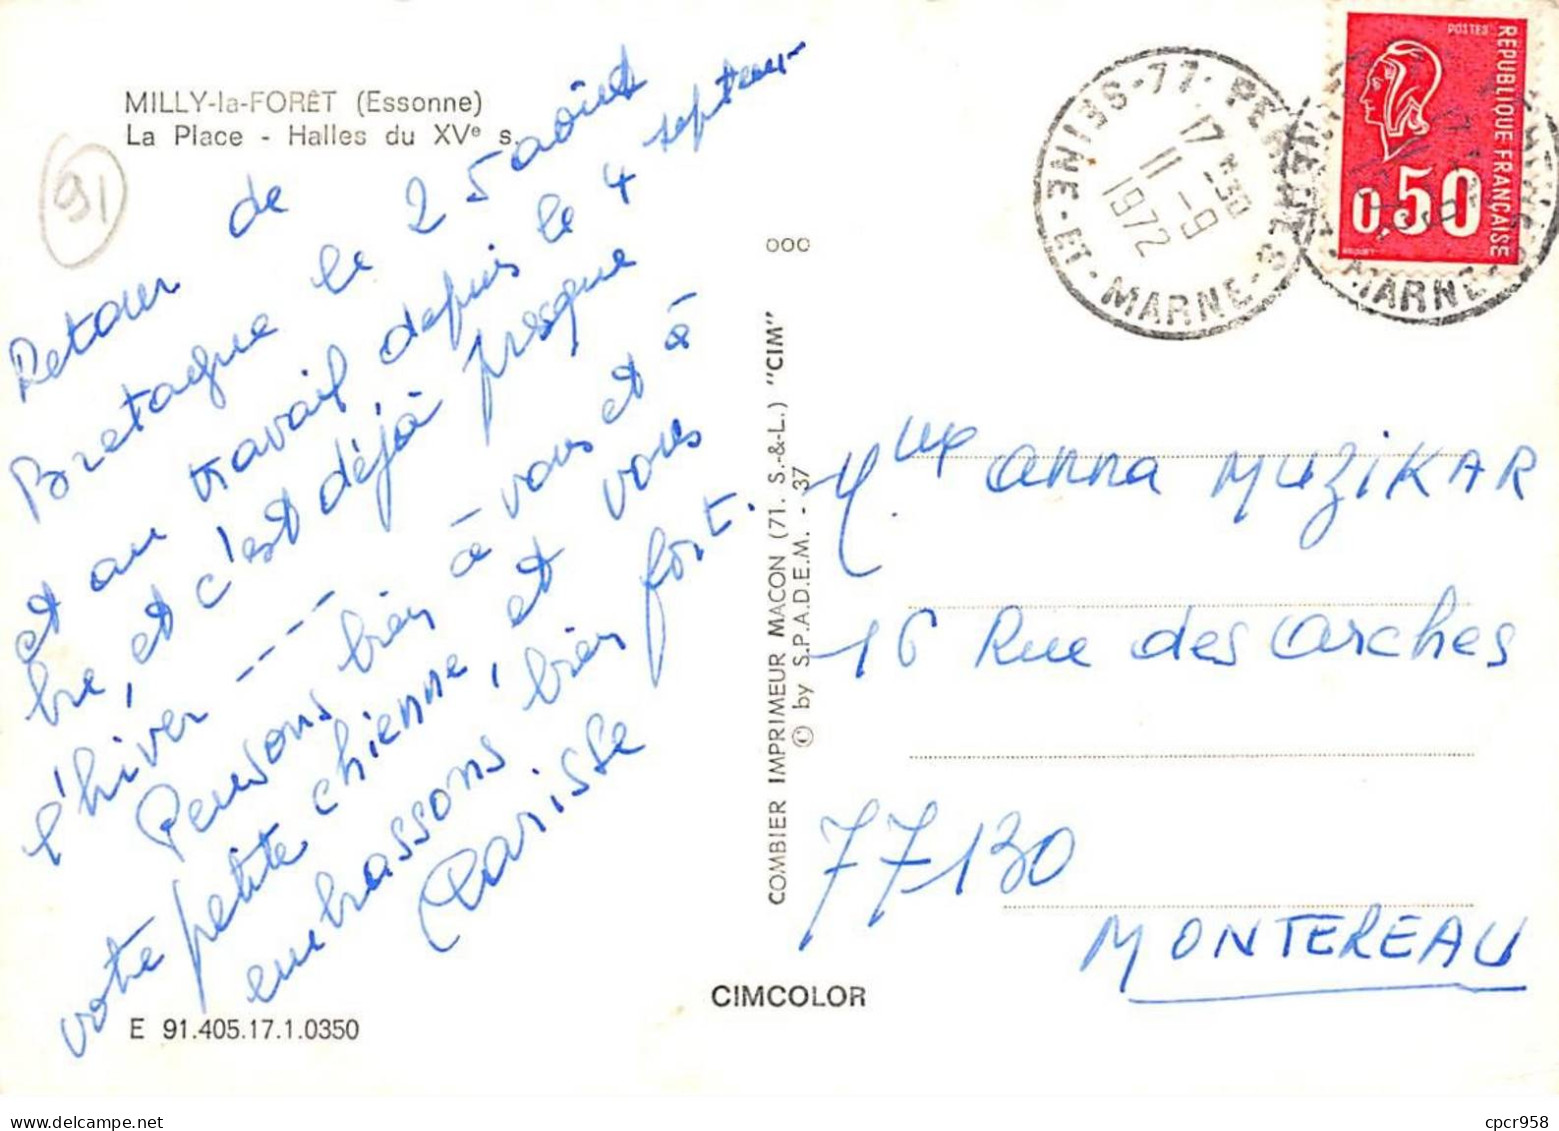 MILLY-la-FORÊT (Essonne)
La Place - Halles du XVe s.
91
Retour de
Bretagne le 25 août
et au travail depuis le 4 septem-
bre, et c'est déjà presque
l'hiver ----
Pensons bien à vous et à
votre petite chienne, et vous
embrassons bien fort.
Clarisse
E 91.405.17.1.0350
COMBIER IMPRIMEUR MACON (71. S.-&-L.) "CIM"
© by S.P.A.D.E.M. - 37
CIMCOLOR
17 H30
11 -9
1972
77
SEINE-ET-MARNE
MARNE
POSTES
REPUBLIQUE FRANÇAISE
0,50
Mme Anna MUZIKAR
16 Rue des Arches
77130
MONTEREAU
cpcr958